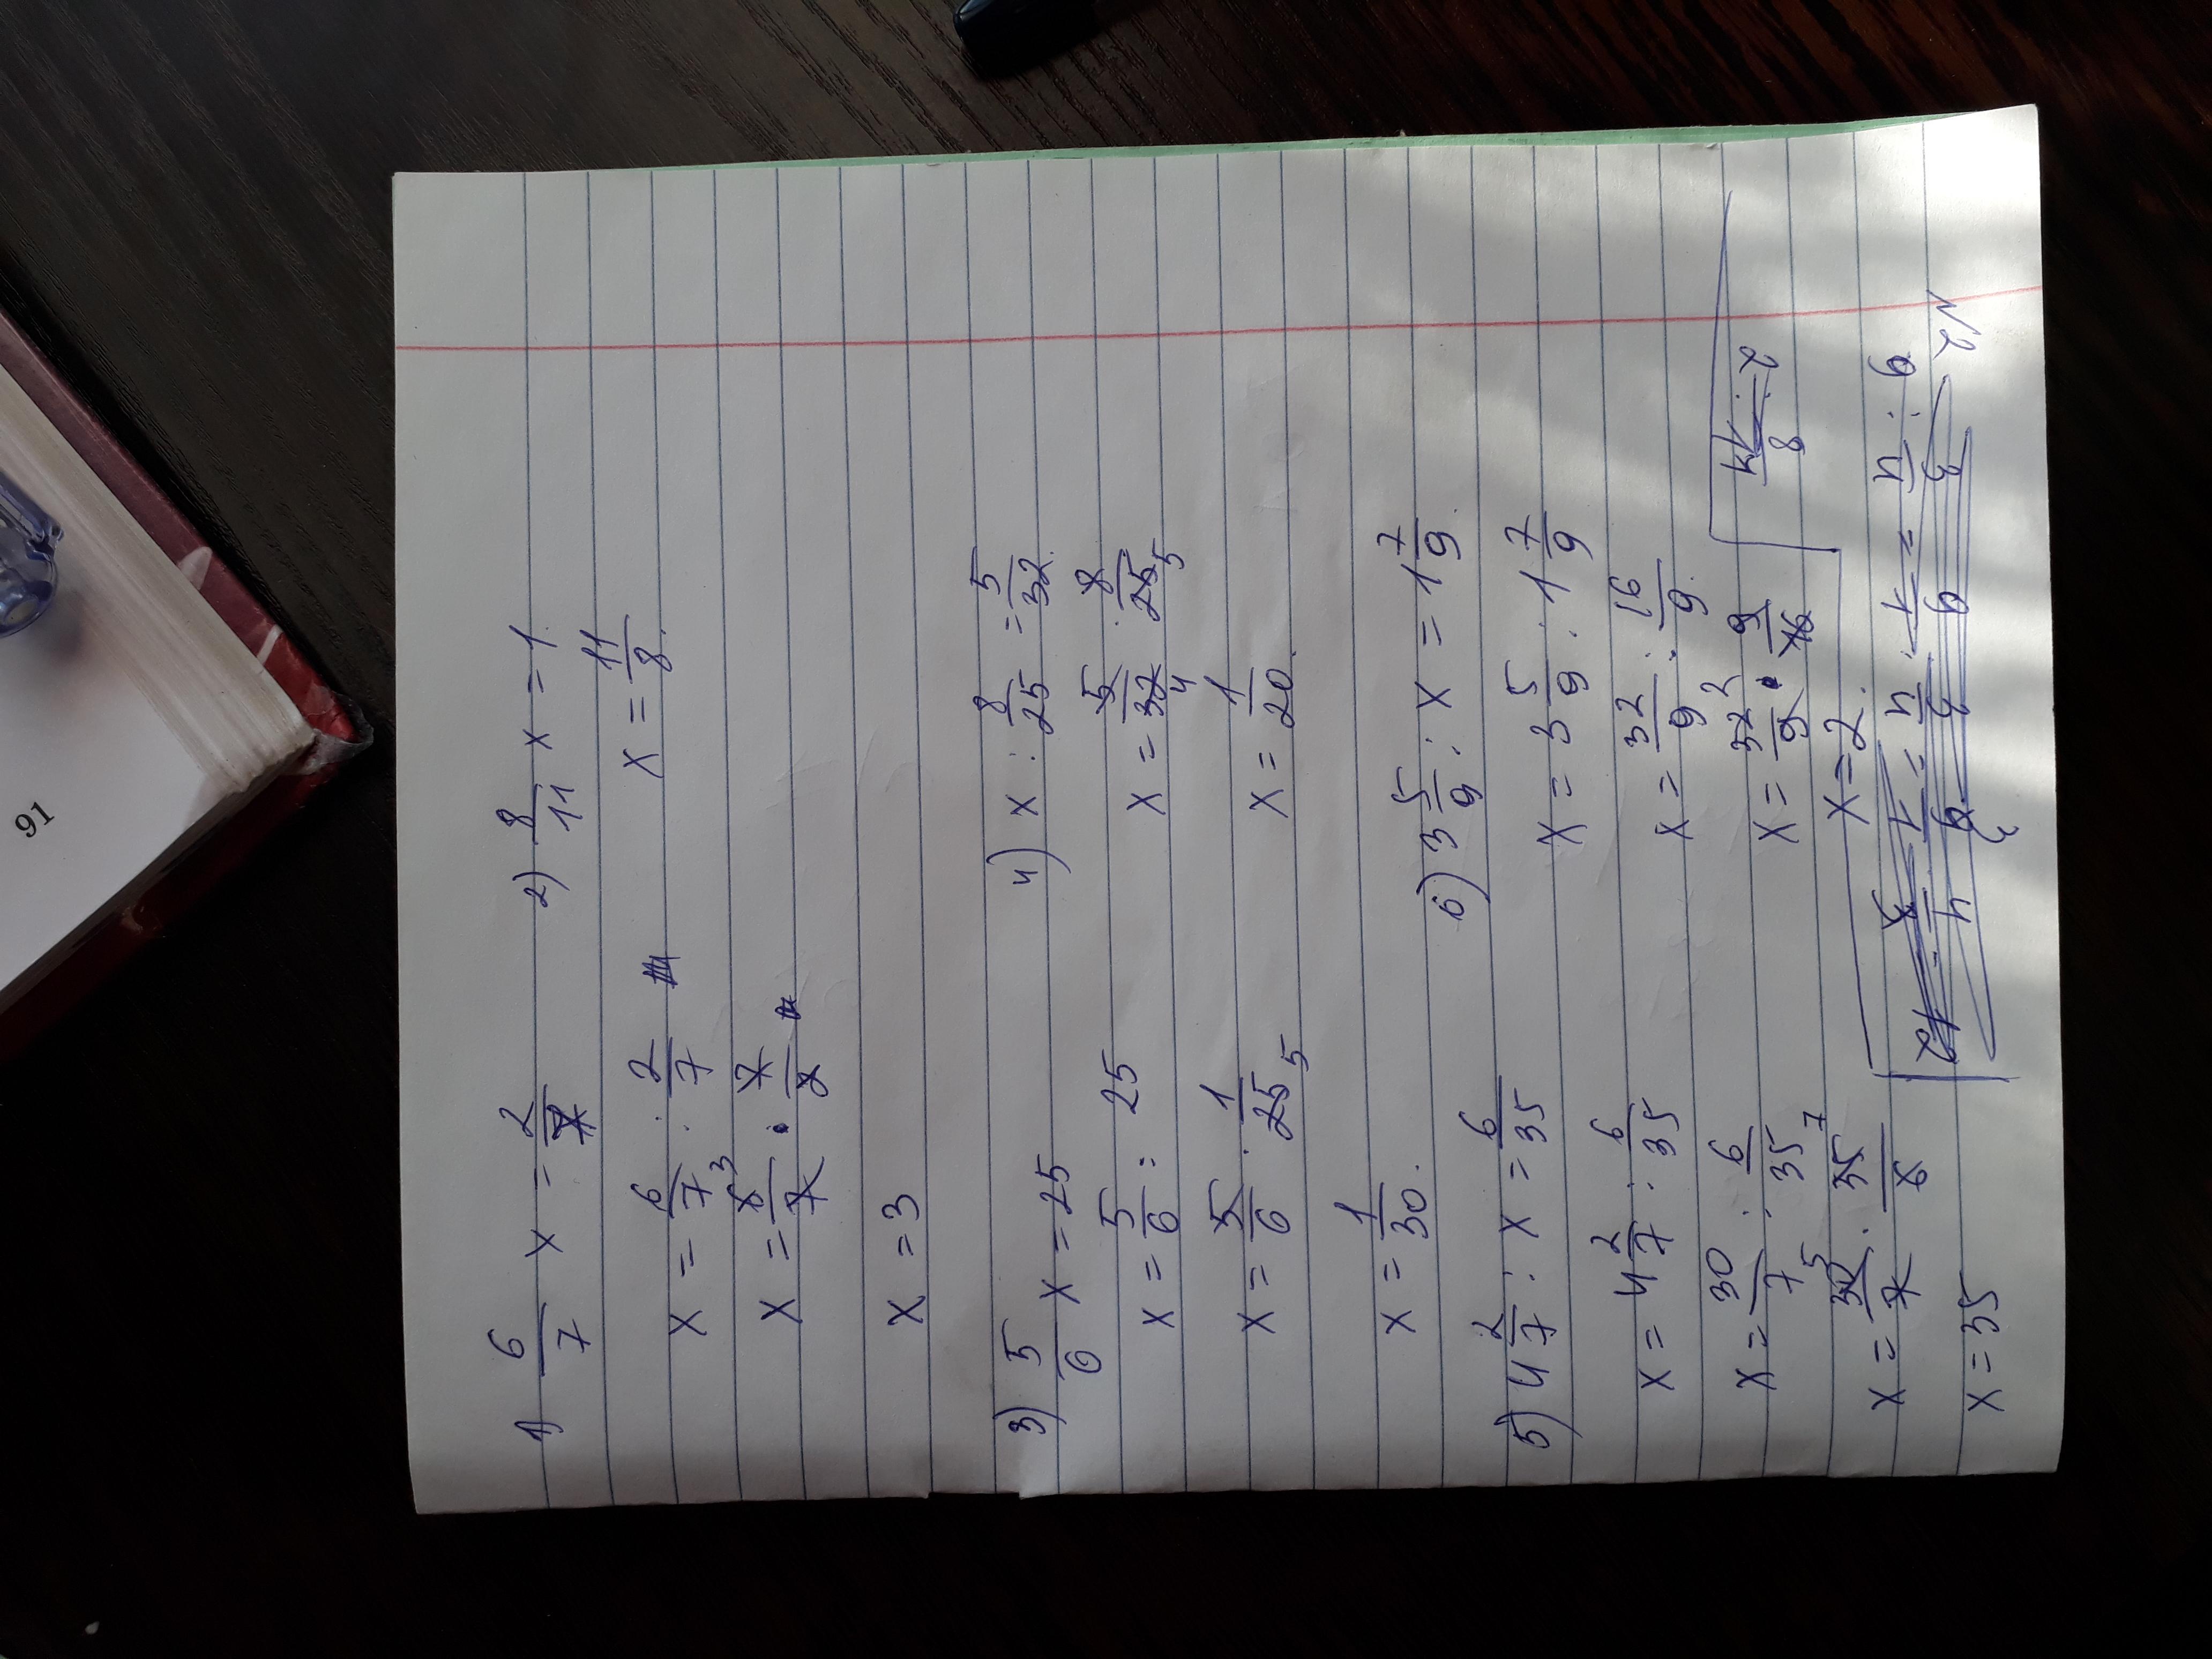 91
1) 6/7 x = 2/7
x = 6/7 : 2/7
x = 6/7 3 · 7/2
x = 3
2) 8/11 x = 1
x = 11/8.
3) 5/6 x = 25
x = 5/6 : 25
x = 5/6 · 1/25 5
x = 1/30.
4) x : 8/25 = 5/32
x = 5/32 4 · 8/25 5
x = 1/20.
5) 4 2/7 : x = 6/35
x = 4 2/7 : 6/35
x = 30/7 : 6/35
x = 30 5/7 · 35/6 7
x = 35
6) 3 5/9 : x = 1 7/9.
x = 3 5/9 : 1 7/9
x = 32/9 : 16/9.
x = 32 2/9 · 9/16
x = 2.
N2